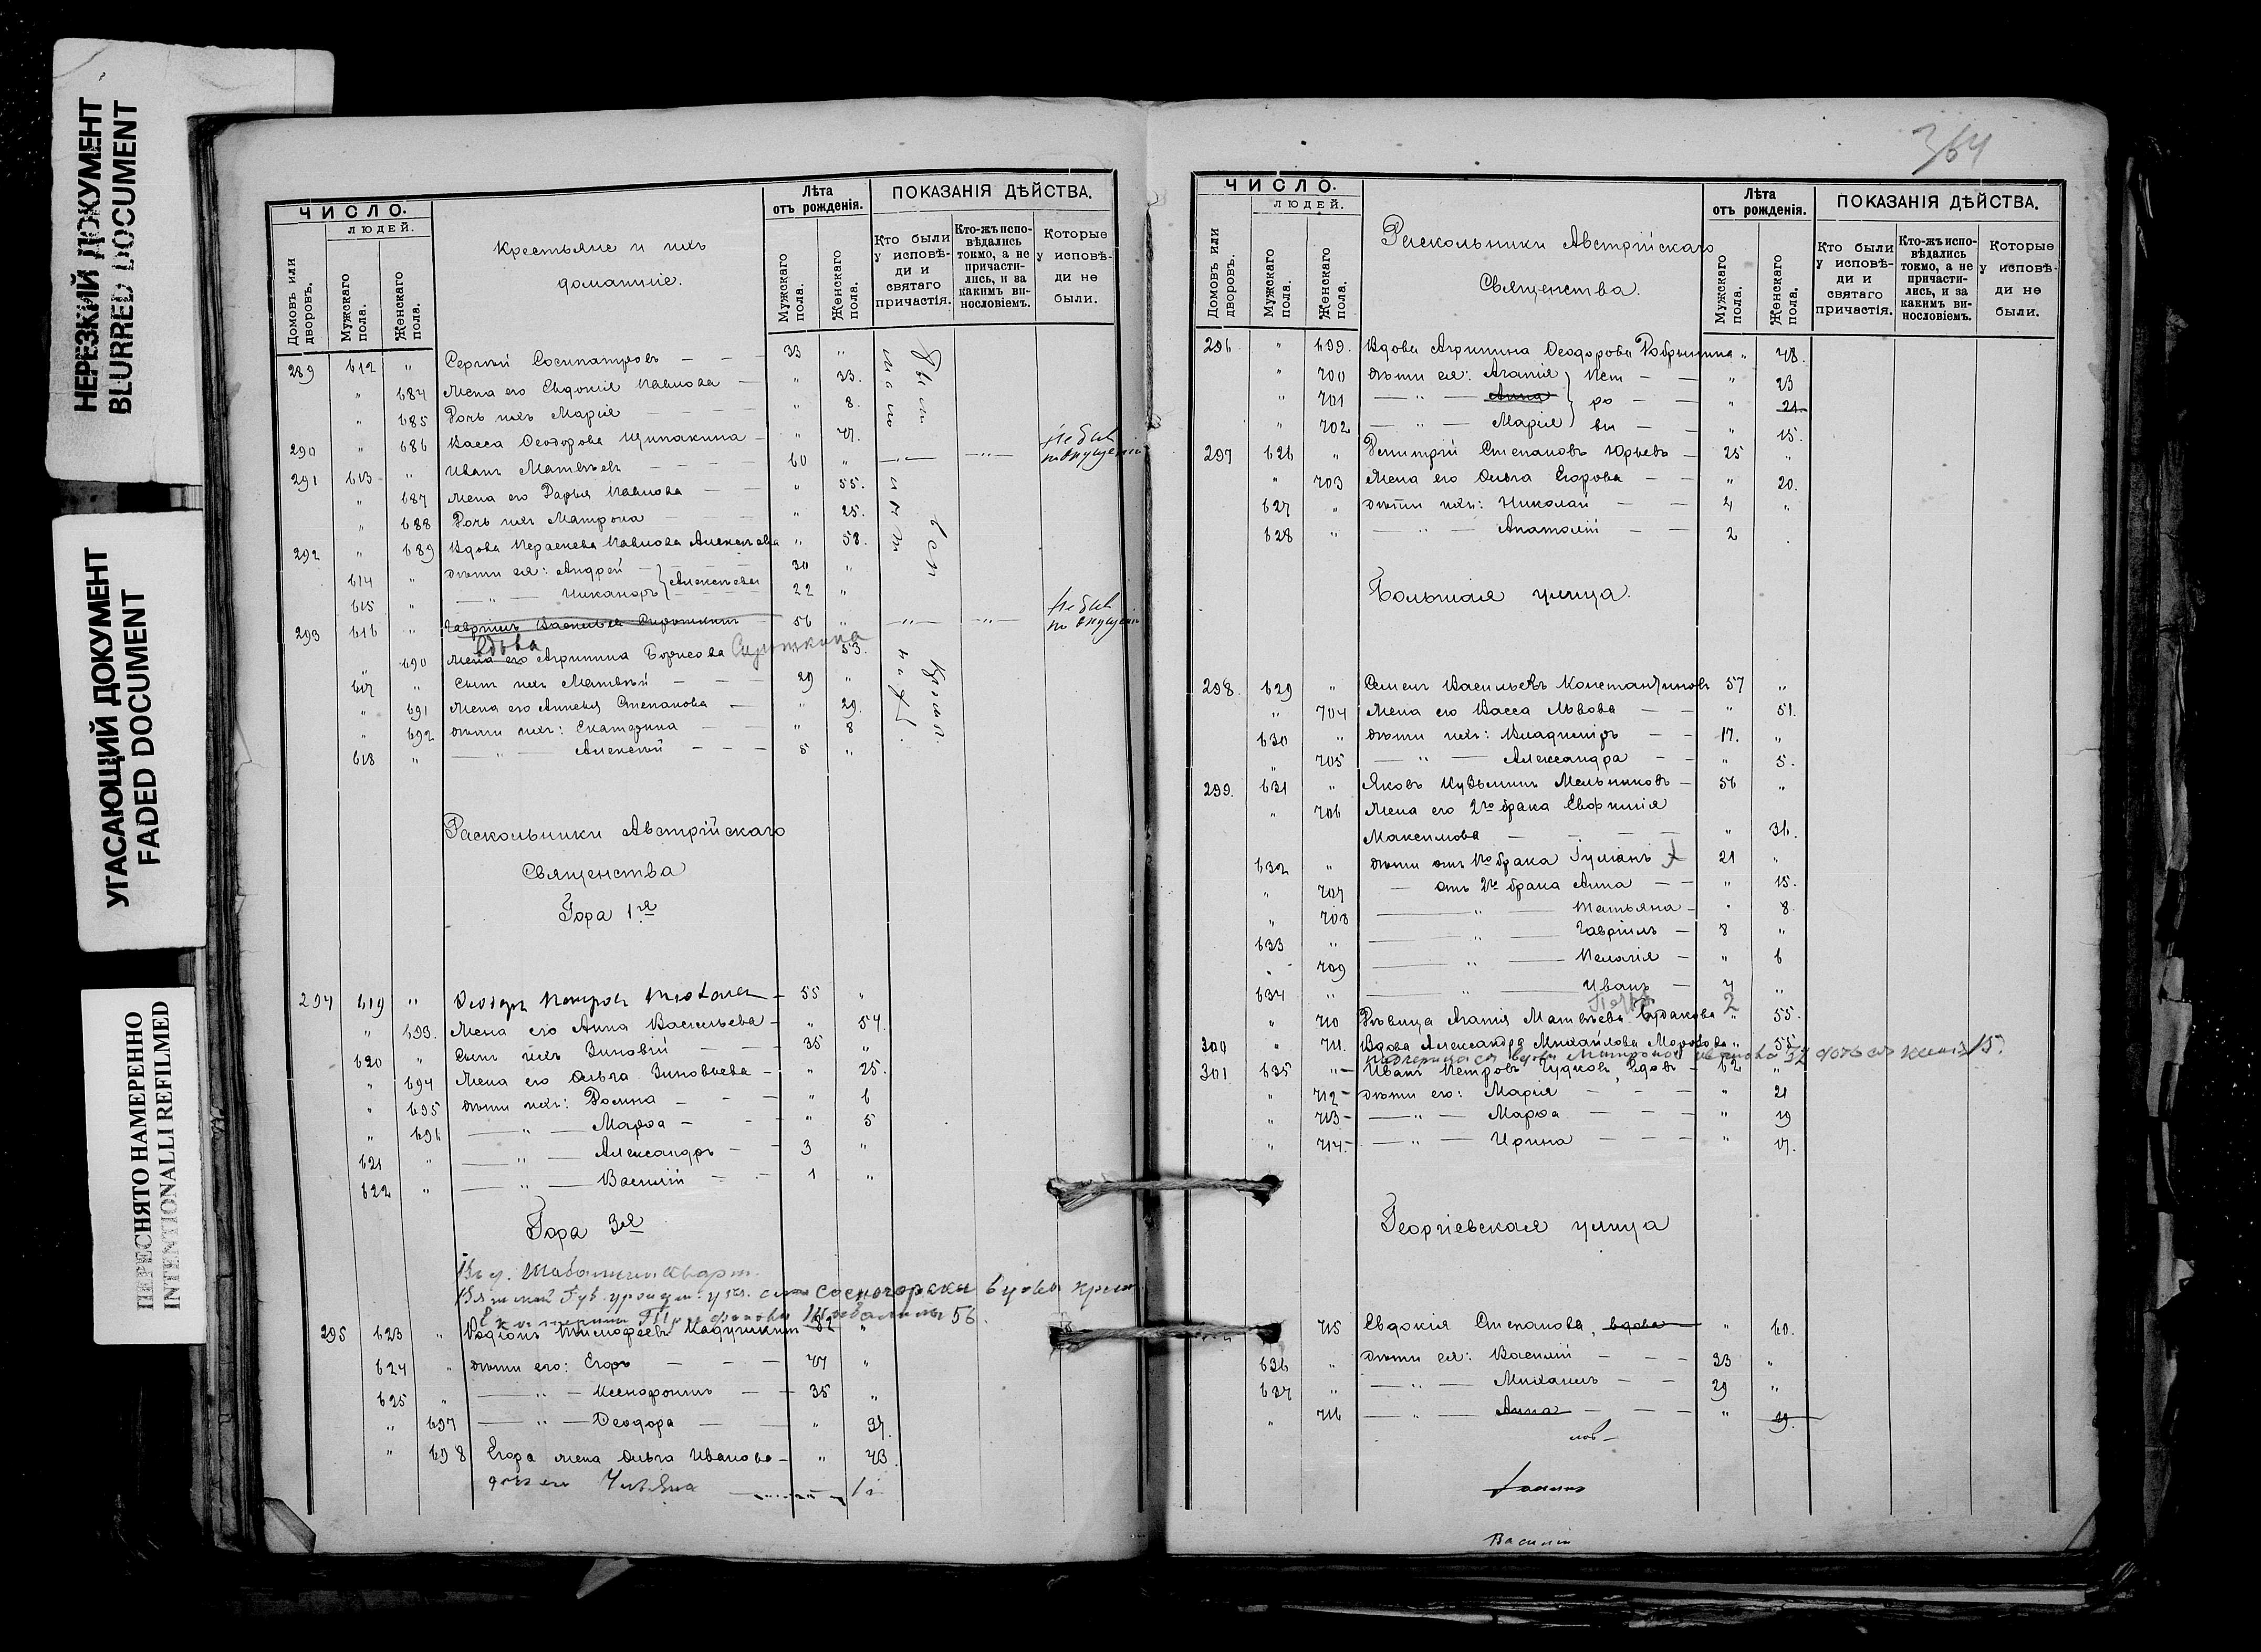 НЕРЕЗКИЙ ДОКУМЕНТ
BLURRED DOCUMENT
УГАСАЮЩИЙ ДОКУМЕНТ
FADED DOCUMENT
ПЕРЕСНЯТО НАМЕРЕННО
INTENTIONALLI REFILMED
ЧИСЛО.
ЛЮДЕЙ.
Домовъ или дворовъ.
Мужскаго пола.
Женскаго пола.
Крестьяне и ихъ
домашніе.
Лѣта
отъ рожденія.
Мужскаго пола.
Женскаго пола.
ПОКАЗАНІЯ ДѢЙСТВА.
Кто были у исповѣди и святаго причастія.
Кто-жъ исповѣдались токмо, а не причастились, и за какимъ винословіемъ.
Которые у исповѣди не были.
289 612 " Сергѣй Сосипатровъ — — 33 "
" 684 Жена его Евдокія Павлова — " 33.
" 685 Дочь ихъ Марія — — " 8.
290 " 686 Васса Ѳеодорова Щипакина — " 47.
291 613 " Иванъ Матвѣевъ — — 60 "
" 687 Жена его Дарья Павлова — — " 55.
" 688 Дочь ихъ Матрона — " 25.
292 " 689 Вдова Параскева Павлова Алексѣева " 58.
614 " дѣти ея: Андрей — 30 "
615 " — " — Никаноръ } Алексѣевы 22 "
293 616 " Гавріилъ Васильевъ Сироткинъ 56 "
вдова
" 690 Жена его Агрипина Борисова Сироткина 53.
617 " Сынъ ихъ Матвѣй — — 29 "
" 691 Жена его Анисія Степанова — " 29.
" 692 дѣти ихъ: Екатерина — — " 8
618 " — " — Алексѣй — — 5 "
Раскольники Австрійскаго
Священства
Гора 1я
294 619 " Ѳеодоръ Петровъ 55 "
" 693. Жена его Анна Васильева — " 54.
620 " Сынъ ихъ Зиновій — — 35 "
" 694 Жена его Ольга Зиновьева — " 25.
" 695 дѣти ихъ: Домна — — " 6
" 696 — " — Марѳа — — " 5
621 " — " — Александръ — — 3 "
622 " — " — Василій — — 1 "
Гора 3я
295 623 " Родіонъ Тимофеевъ Кадушкинъ 82 "
624 " дѣти его: Егоръ — — 47 "
625 " — " — Ксенофонтъ — — 35 "
" 697 — " — Ѳеодора — — " 37.
" 698 Егора жена Ольга Иванова — " 43.
364
ЧИСЛО.
ЛЮДЕЙ.
Домовъ или дворовъ.
Мужскаго пола.
Женскаго пола.
Раскольники Австрійскаго
Священства.
Лѣта
отъ рожденія.
Мужскаго пола.
Женскаго пола.
ПОКАЗАНІЯ ДѢЙСТВА.
Кто были у исповѣди и святаго причастія.
Кто-жъ исповѣдались токмо, а не причастились, и за какимъ винословіемъ.
Которые у исповѣди не были.
296 " 699. Вдова Агрипина Ѳеодорова Добрынина " 48.
" 700 дѣти ея: Агапія } Пет — — " 23
" 701 — " — Анна } ро — — " 21
" 702 — " — Марія } вы — — " 15.
297 626 " Димитрій Степановъ Юрьевъ — 25 "
" 703 Жена его Ольга Егорова — — " 20.
627 " дѣти ихъ: Николай — — 4 "
628 " — " — Анатолій — — 2 .
Большая улица.
298. 629 " Семенъ Васильевъ Константиновъ 57 "
" 704 Жена его Васса Львова — — " 51.
630 " дѣти ихъ: Владиміръ — — 17. "
" 705 — " — Александра — — " 5.
299. 631 " Яковъ Кузьминъ Мельниковъ — 56 "
" 706 Жена его 2го брака Евфимія
Максимова — — — " 36.
632 " дѣти отъ 1го брака Гуліанъ 21 "
" 707 — отъ 2го брака Анна — — " 15.
" 708 — " — Татьяна — " 8.
633 " — " — Гавріилъ — 8 "
" 709 — " — Пелагія — " 6
634 " — " — Иванъ — 4 "
" 710 Дѣвица Агапія Матвѣева Бурдакова " 55.
300 " 711. Вдова Александра Михайлова Морозова " 55.
301 635 " — Иванъ Петровъ Чудковъ, вдовъ — 62 "
" 712 — дѣти его: Марія — — — " 21
" 713 — — " — Марѳа — — — " 19
" 714. — — " — Ирина — — — " 17.
Георгіевская улица
715 Евдокія Степанова, вдова " 60.
636 " дѣти ея: Василій — — — 33 "
637 " — " — Михаилъ — — 29 "
" 716 — " — Анна — — — " 19.
Василій